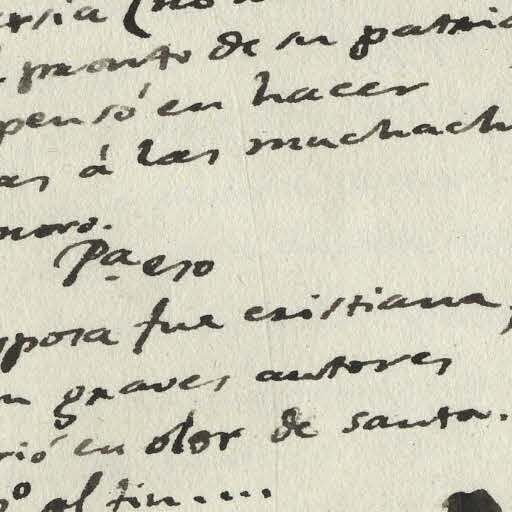 ersia (no
pronto de su patria
pensó en hacer
as á las muchach
moro.
Pa eso
sposa fue cristiana,
n graves autores
rió en olor de santa.
pº al fin....